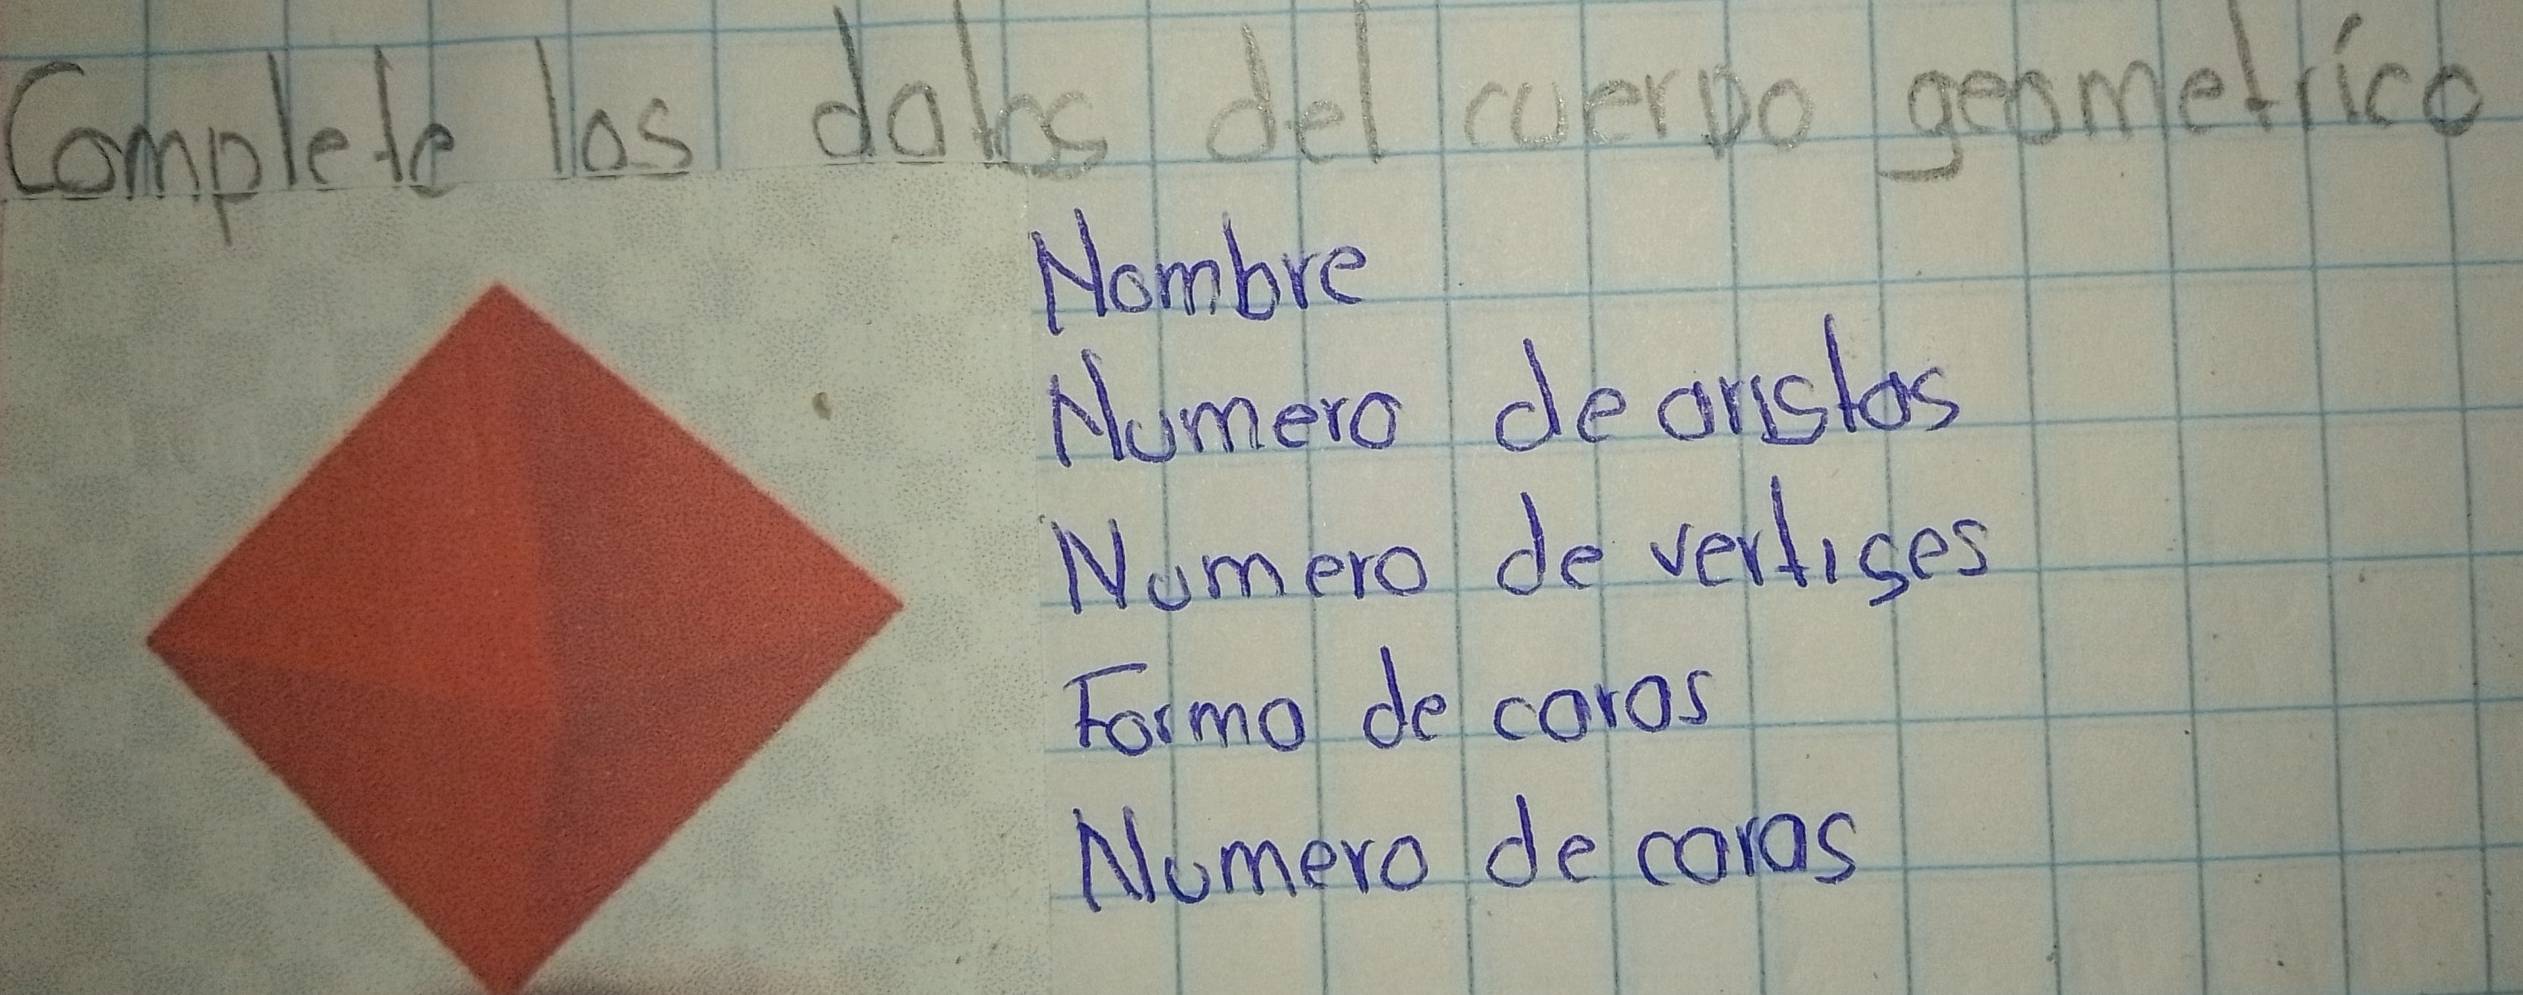 Complete los datos del cuerpo geometrico
Nombre
Numero de aristas
Numero de vertises
Forma de caras
Numero de caras